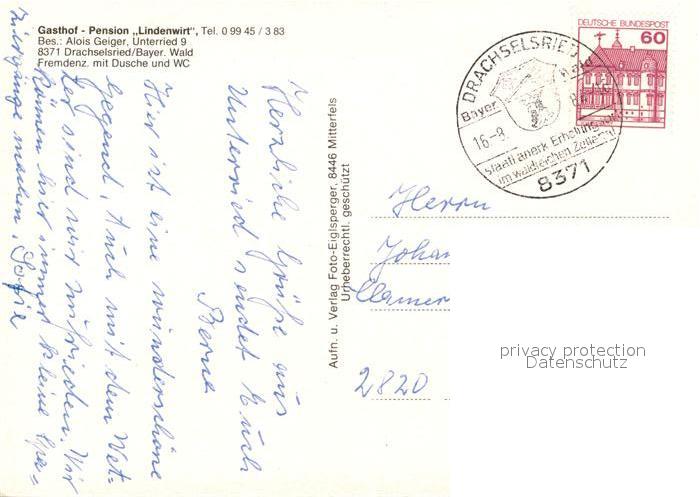 Gasthof - Pension „Lindenwirt", Tel. 0 99 45 / 3 83
Bes.: Alois Geiger, Unterried 9
8371 Drachselsried/Bayer. Wald
Fremdenz. mit Dusche und WC
Herzliche Grüße aus
Unterried sendet Euch
Berna
Hier ist eine wunderschöne
Gegend, Auch mit dem Wet=
ter sind wir zufrieden. Wir
können hier immer kleine Spa=
ziergänge machen. Sofie
Aufn. u. Verlag Foto-Eiglsperger, 8446 Mitterfels
Urheberrechtl. geschützt
DEUTSCHE BUNDESPOST
60
DRACHSELSRIED
Bayer Wald
16-8.
staatl anerk Erholungsort
im waldreichen Zellertal
8371
Herrn
Johan
Clamer
2820
privacy protection
Datenschutz